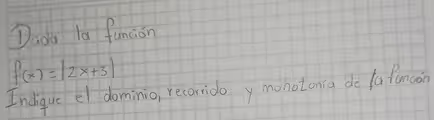 Dada la función
f(x) = |2x+3|
Indique el dominio, recorrido y monotonía de la función